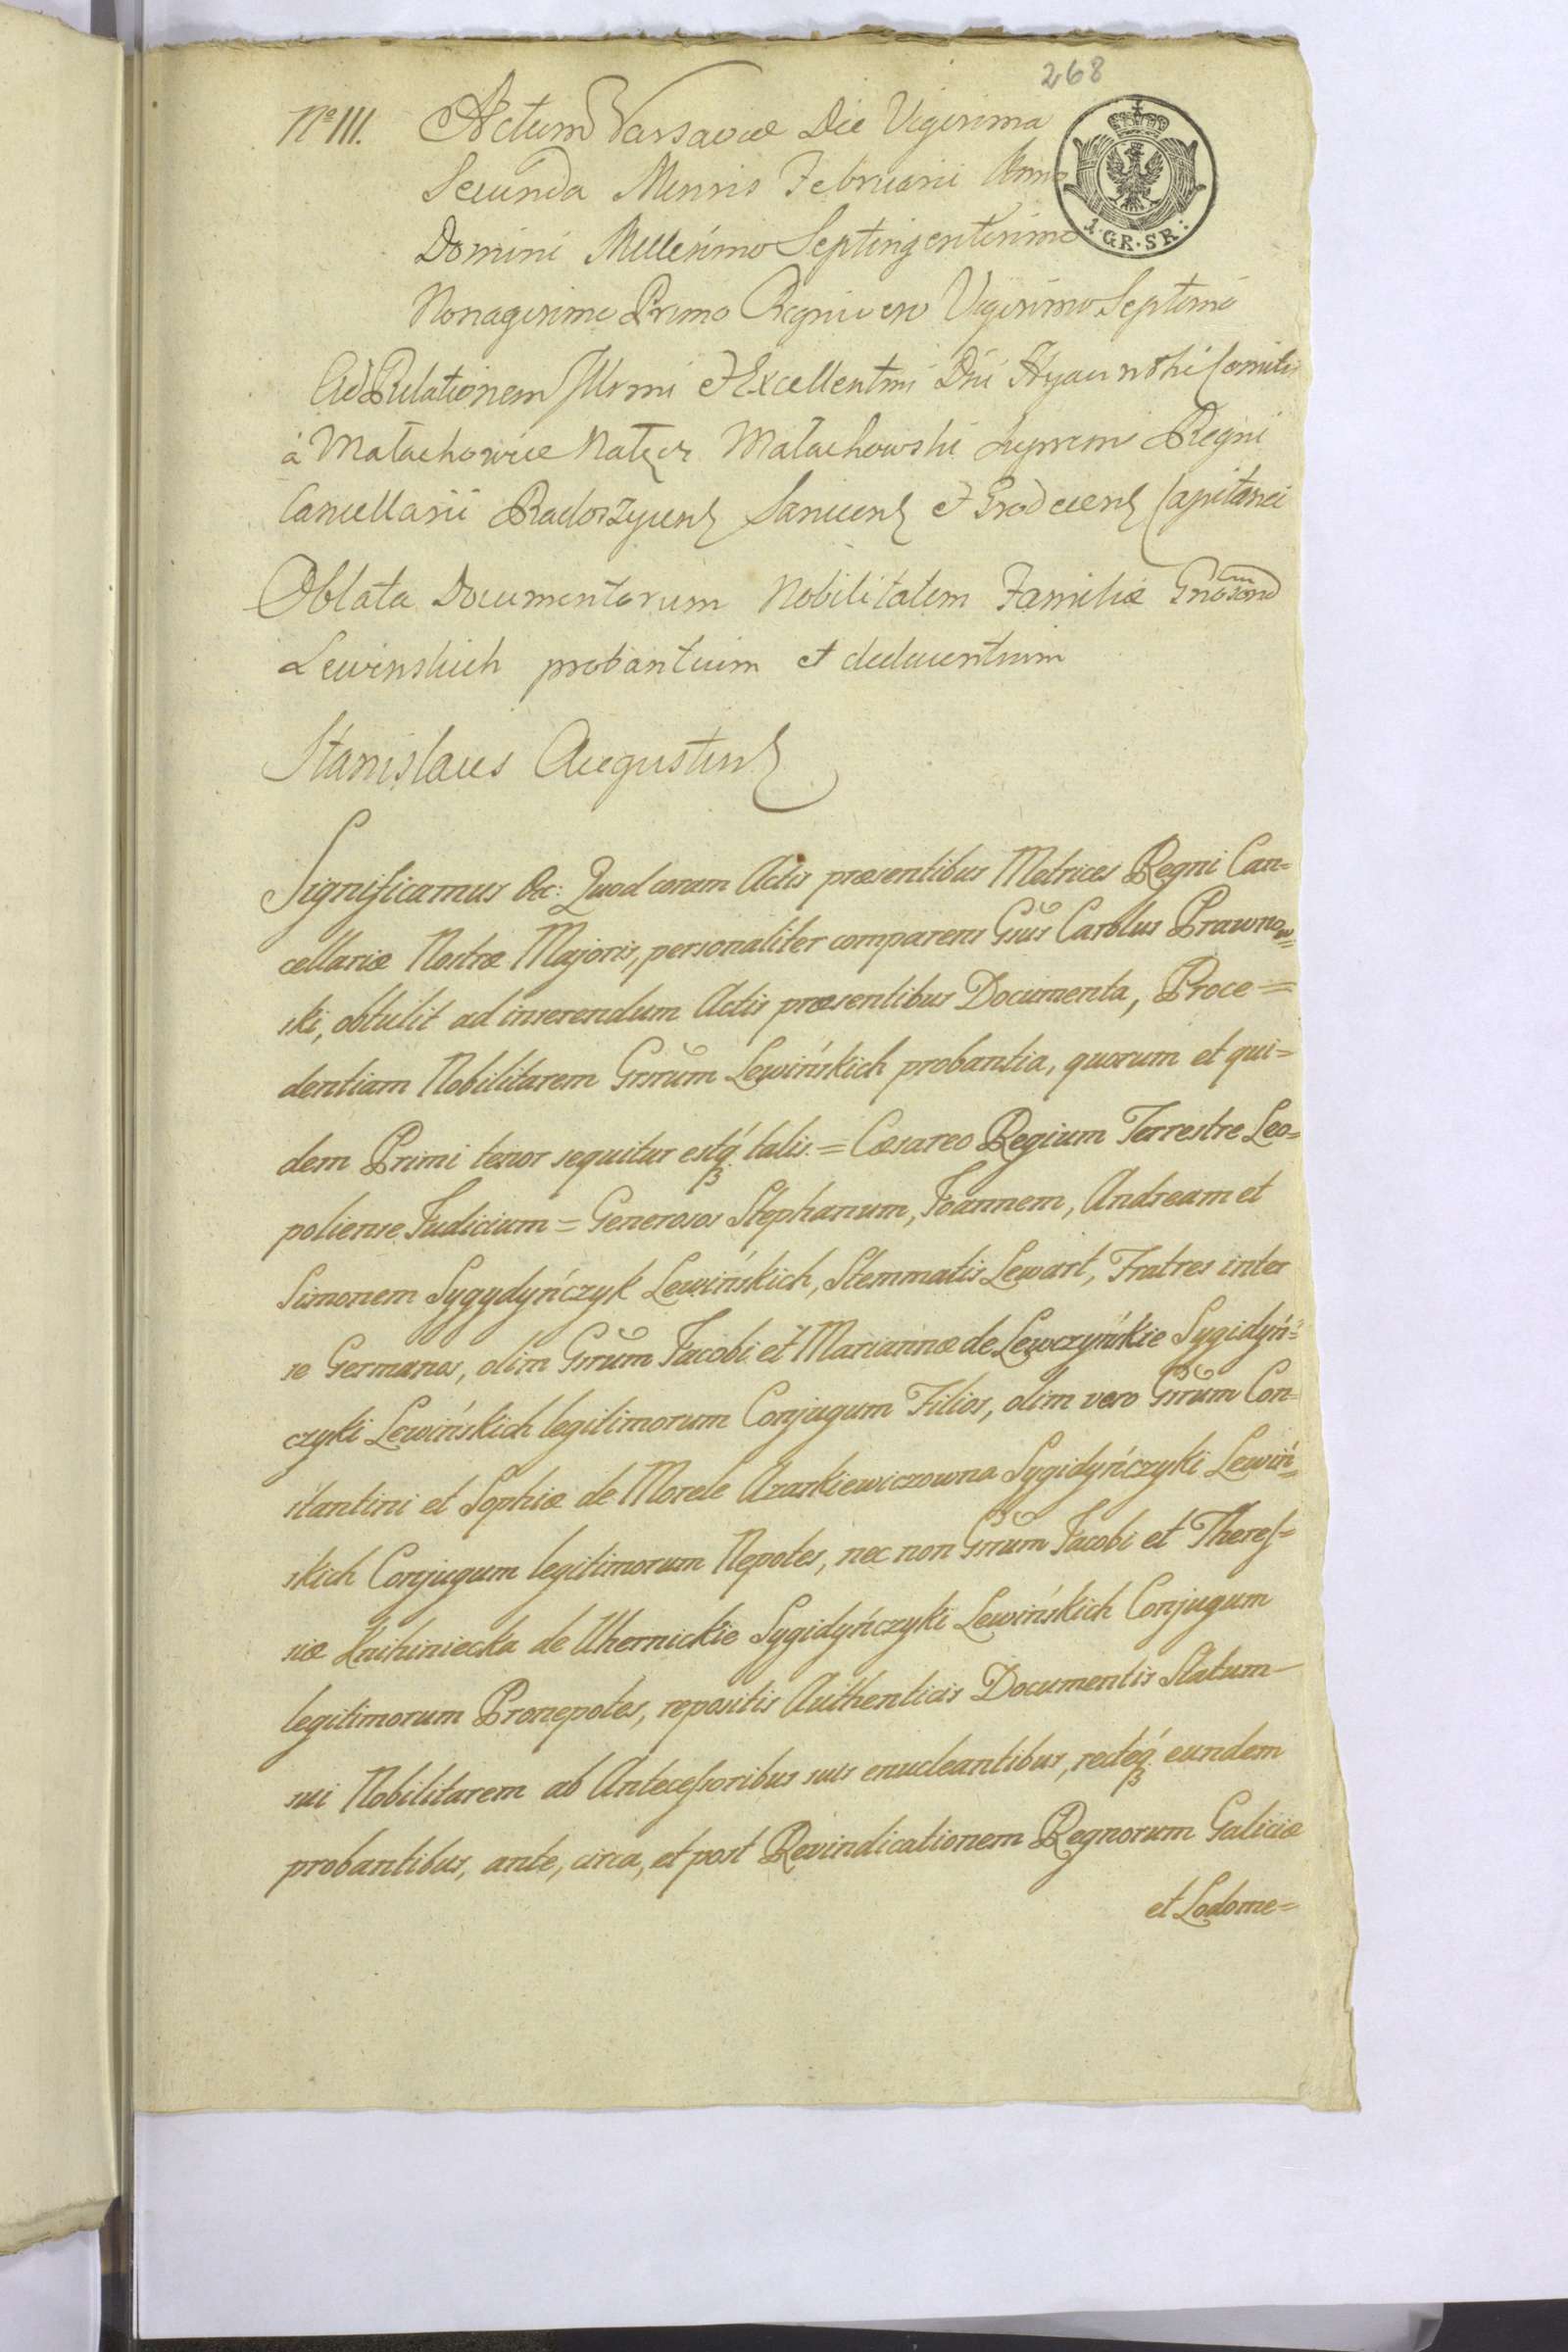 268
1·GR·SR:
No III. Actum Varsaviæ Die Vigesima
Secunda Mensis Februarii Anno
Domini Millesimo Septingentesimo
Nonagesimo Primo Regni vero Vigesimo Septimo
Ad Relationem Illrmi et Excellentmi Dni Hyacinthi Comitis
à Małachowice Nałęcz Małachowski Supremi Regni
Cancellarii Radoszycens Sanicens et Grodecens Capitanei
Oblata Documentorum Nobilitatem Familiæ
Lewinskich probantium et deducentium
Stanislaus Augustus
Significamus &c: Quod coram Actis præsentibus Metrices Regni Can=
cellariæ Nostræ Majoris, personaliter comparens Gsus Carolus Prawnow=
ski, obtulit ad inserendum Actis præsentibus Documenta, Proce=
dentiam Nobilitarem Gsrum Lewińskich probantia, quorum et qui=
dem Primi tenor sequitur estq talis. = Cæsareo Regium Terrestre Leo=
poliense Judicium = Generosos Stephanum, Joannem, Andream et
Simonem Sygydyńczyk Lewińskich, Stemmatis Lewart, Fratres inter
se Germanos, olim Gsrum Jacobi et Mariannæ de Lewczyńskie Sygidyń=
czyki Lewińskich legitimorum Conjugum Filios, olim vero Gsrum Con=
stantini et Sophiæ de Morele Azarkiewiczowna Sygidyńczyki Lewiń=
skich Conjugum legitimorum Nepotes, nec non Gsrum Jacobi et Theres=
siæ Knihiniecka de Uhernickie Sygidyńczyki Lewińskich Conjugum
legitimorum Pronepotes, repositis Authenticis Documentis Statum
sui Nobilitarem ab Antecessoribus suis enucleantibus, recteq eundem
probantibus, ante, circa, et post Revindicationem Regnorum Galiciæ
et Lodome=